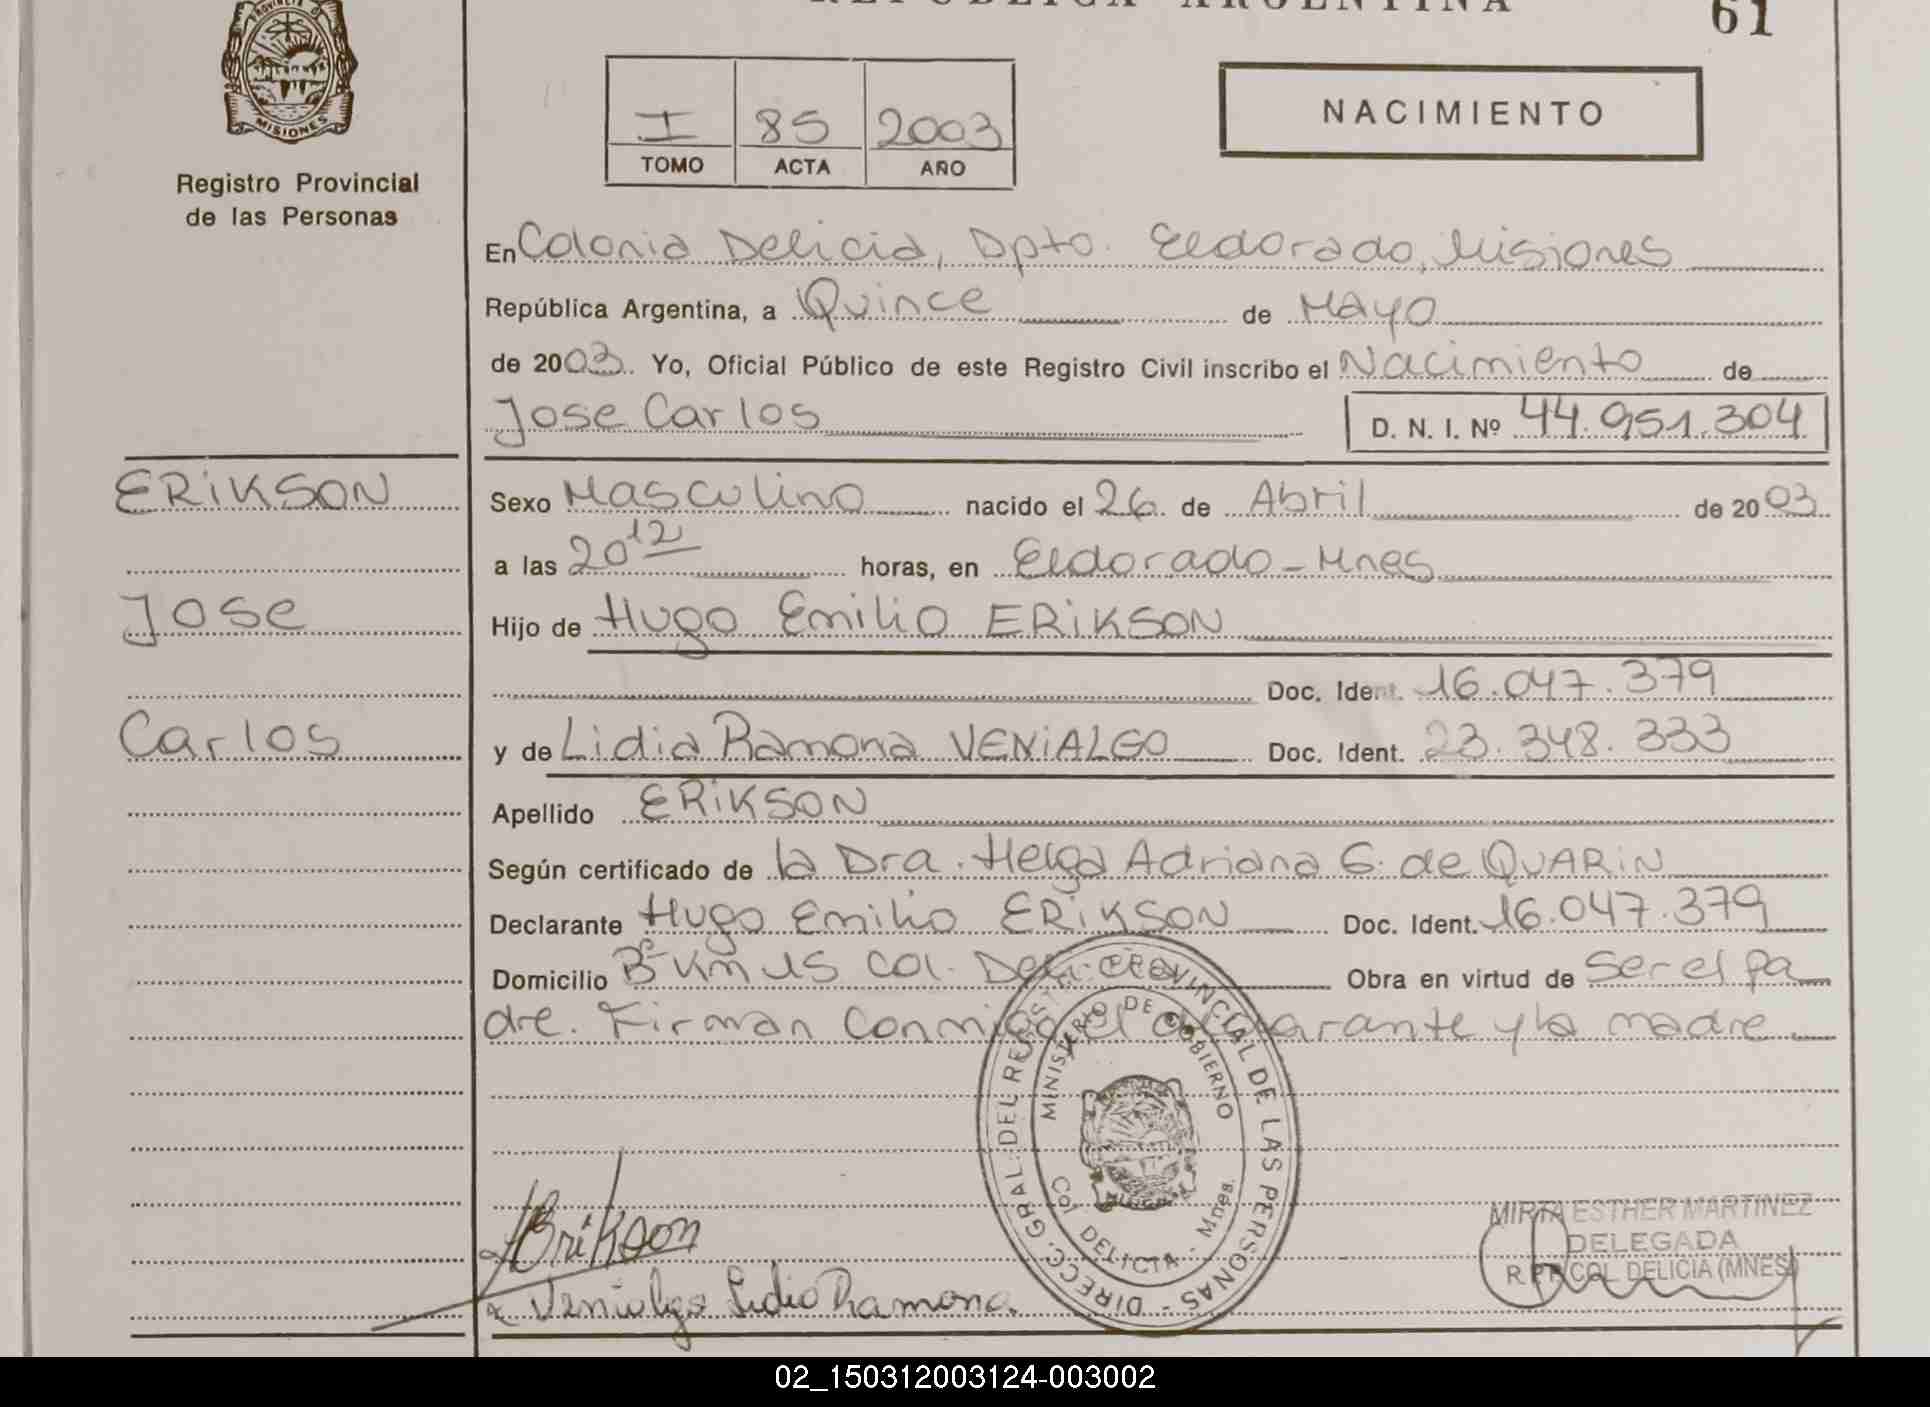 REPUBLICA ARGENTINA
61
PROVINCIA D
MISIONES
Registro Provincial
de las Personas
I 85 2003
TOMO ACTA AÑO
NACIMIENTO
En Colonia Delicia, Dpto. Eldorado, Misiones
República Argentina, a Quince de Mayo
de 2003. Yo, Oficial Público de este Registro Civil inscribo el Nacimiento de
Jose Carlos
D. N. I. Nº 44.951.304
ERIKSON
Jose
Carlos
Sexo Masculino nacido el 26 de Abril de 2003
a las 20 12 horas, en Eldorado - Mnes
Hijo de Hugo Emilio ERIKSON
Doc. Ident. 16.047.379
y de Lidia Ramona VENIALGO Doc. Ident. 23.348.333
Apellido ERIKSON
Según certificado de la Dra. Helga Adriana G. de QUARIN
Declarante Hugo Emilio ERIKSON Doc. Ident. 16.047.379
Domicilio Bº Km 15 Col. Delicia Obra en virtud de Ser el pa
dre. Firman conmigo el declarante y la madre
DIRECC. GRAL. DEL REGISTRO PROVINCIAL DE LAS PERSONAS -
MINISTERIO DE GOBIERNO
Col. DELICIA - Mnes.
Erikson
Venialgo Lidia Ramona.
MIRTA ESTHER MARTINEZ
DELEGADA
R.P.P. COL. DELICIA (MNES)
02_150312003124-003002